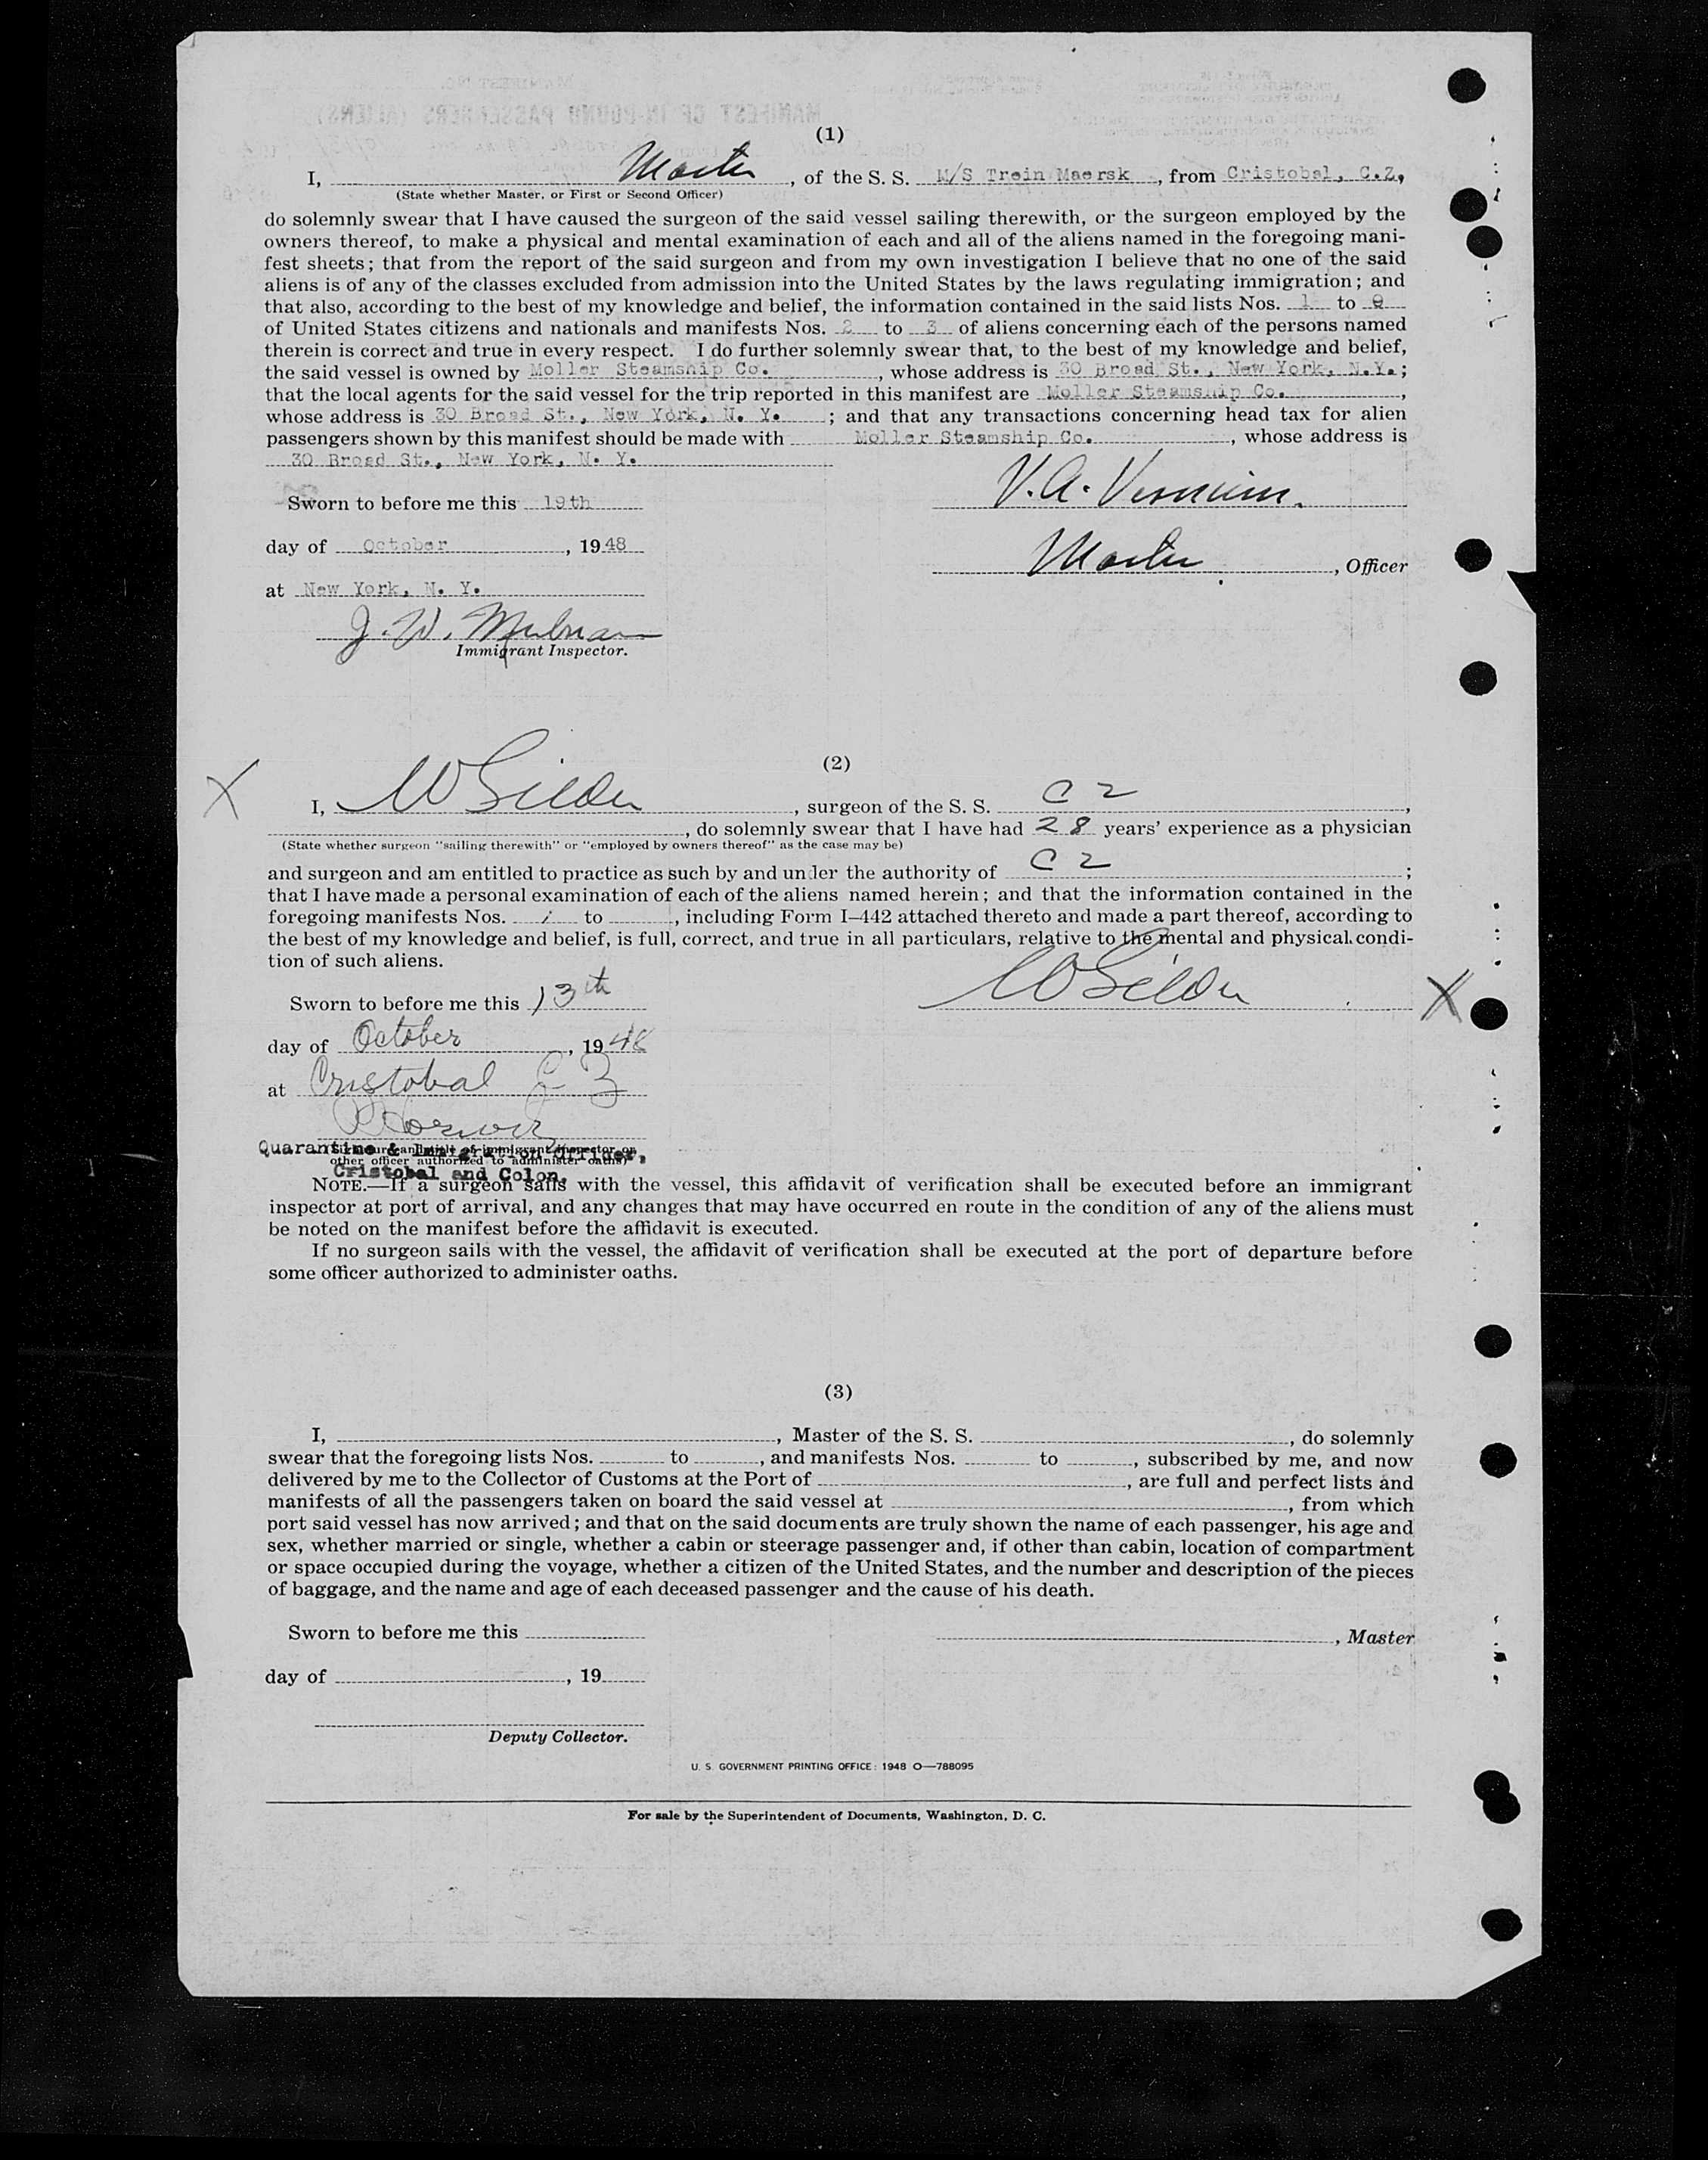 (1)
I, Master, of the S. S. M/S Trein Maersk, from Cristobal, C.Z.,
(State whether Master, or First or Second Officer)
do solemnly swear that I have caused the surgeon of the said vessel sailing therewith, or the surgeon employed by the
owners thereof, to make a physical and mental examination of each and all of the aliens named in the foregoing mani-
fest sheets; that from the report of the said surgeon and from my own investigation I believe that no one of the said
aliens is of any of the classes excluded from admission into the United States by the laws regulating immigration; and
that also, according to the best of my knowledge and belief, the information contained in the said lists Nos. 1 to
of United States citizens and nationals and manifests Nos. 2 to 3 of aliens concerning each of the persons named
therein is correct and true in every respect. I do further solemnly swear that, to the best of my knowledge and belief,
the said vessel is owned by Moller Steamship Co., whose address is 30 Broad St., New York, N.Y.;
that the local agents for the said vessel for the trip reported in this manifest are Moller Steamship Co.,
whose address is 30 Broad St., New York, N. Y.; and that any transactions concerning head tax for alien
passengers shown by this manifest should be made with Moller Steamship Co., whose address is
30 Broad St., New York, N. Y.
V. A.
Sworn to before me this 19th
day of October, 1948
Master, Officer
at New York, N. Y.
J. W.
Immigrant Inspector.
(2)
X
I, W, surgeon of the S. S. C Z,
, do solemnly swear that I have had 28 years' experience as a physician
(State whether surgeon "sailing therewith" or "employed by owners thereof" as the case may be)
and surgeon and am entitled to practice as such by and under the authority of C Z;
that I have made a personal examination of each of the aliens named herein; and that the information contained in the
foregoing manifests Nos. 1 to , including Form I-442 attached thereto and made a part thereof, according to
the best of my knowledge and belief, is full, correct, and true in all particulars, relative to the mental and physical condi-
tion of such aliens.
Sworn to before me this 13th
W X
day of October, 1948
at Cristobal C Z
Quarantine & Immigration Officer,
other officer authorized to administer oaths)
Cristobal and Colon,
NOTE.—If a surgeon sails with the vessel, this affidavit of verification shall be executed before an immigrant
inspector at port of arrival, and any changes that may have occurred en route in the condition of any of the aliens must
be noted on the manifest before the affidavit is executed.
If no surgeon sails with the vessel, the affidavit of verification shall be executed at the port of departure before
some officer authorized to administer oaths.
(3)
I, , Master of the S. S. , do solemnly
swear that the foregoing lists Nos. to , and manifests Nos. to , subscribed by me, and now
delivered by me to the Collector of Customs at the Port of , are full and perfect lists and
manifests of all the passengers taken on board the said vessel at , from which
port said vessel has now arrived; and that on the said documents are truly shown the name of each passenger, his age and
sex, whether married or single, whether a cabin or steerage passenger and, if other than cabin, location of compartment
or space occupied during the voyage, whether a citizen of the United States, and the number and description of the pieces
of baggage, and the name and age of each deceased passenger and the cause of his death.
Sworn to before me this
, Master
day of , 19
Deputy Collector.
U. S. GOVERNMENT PRINTING OFFICE: 1948 O—788095
For sale by the Superintendent of Documents, Washington, D. C.